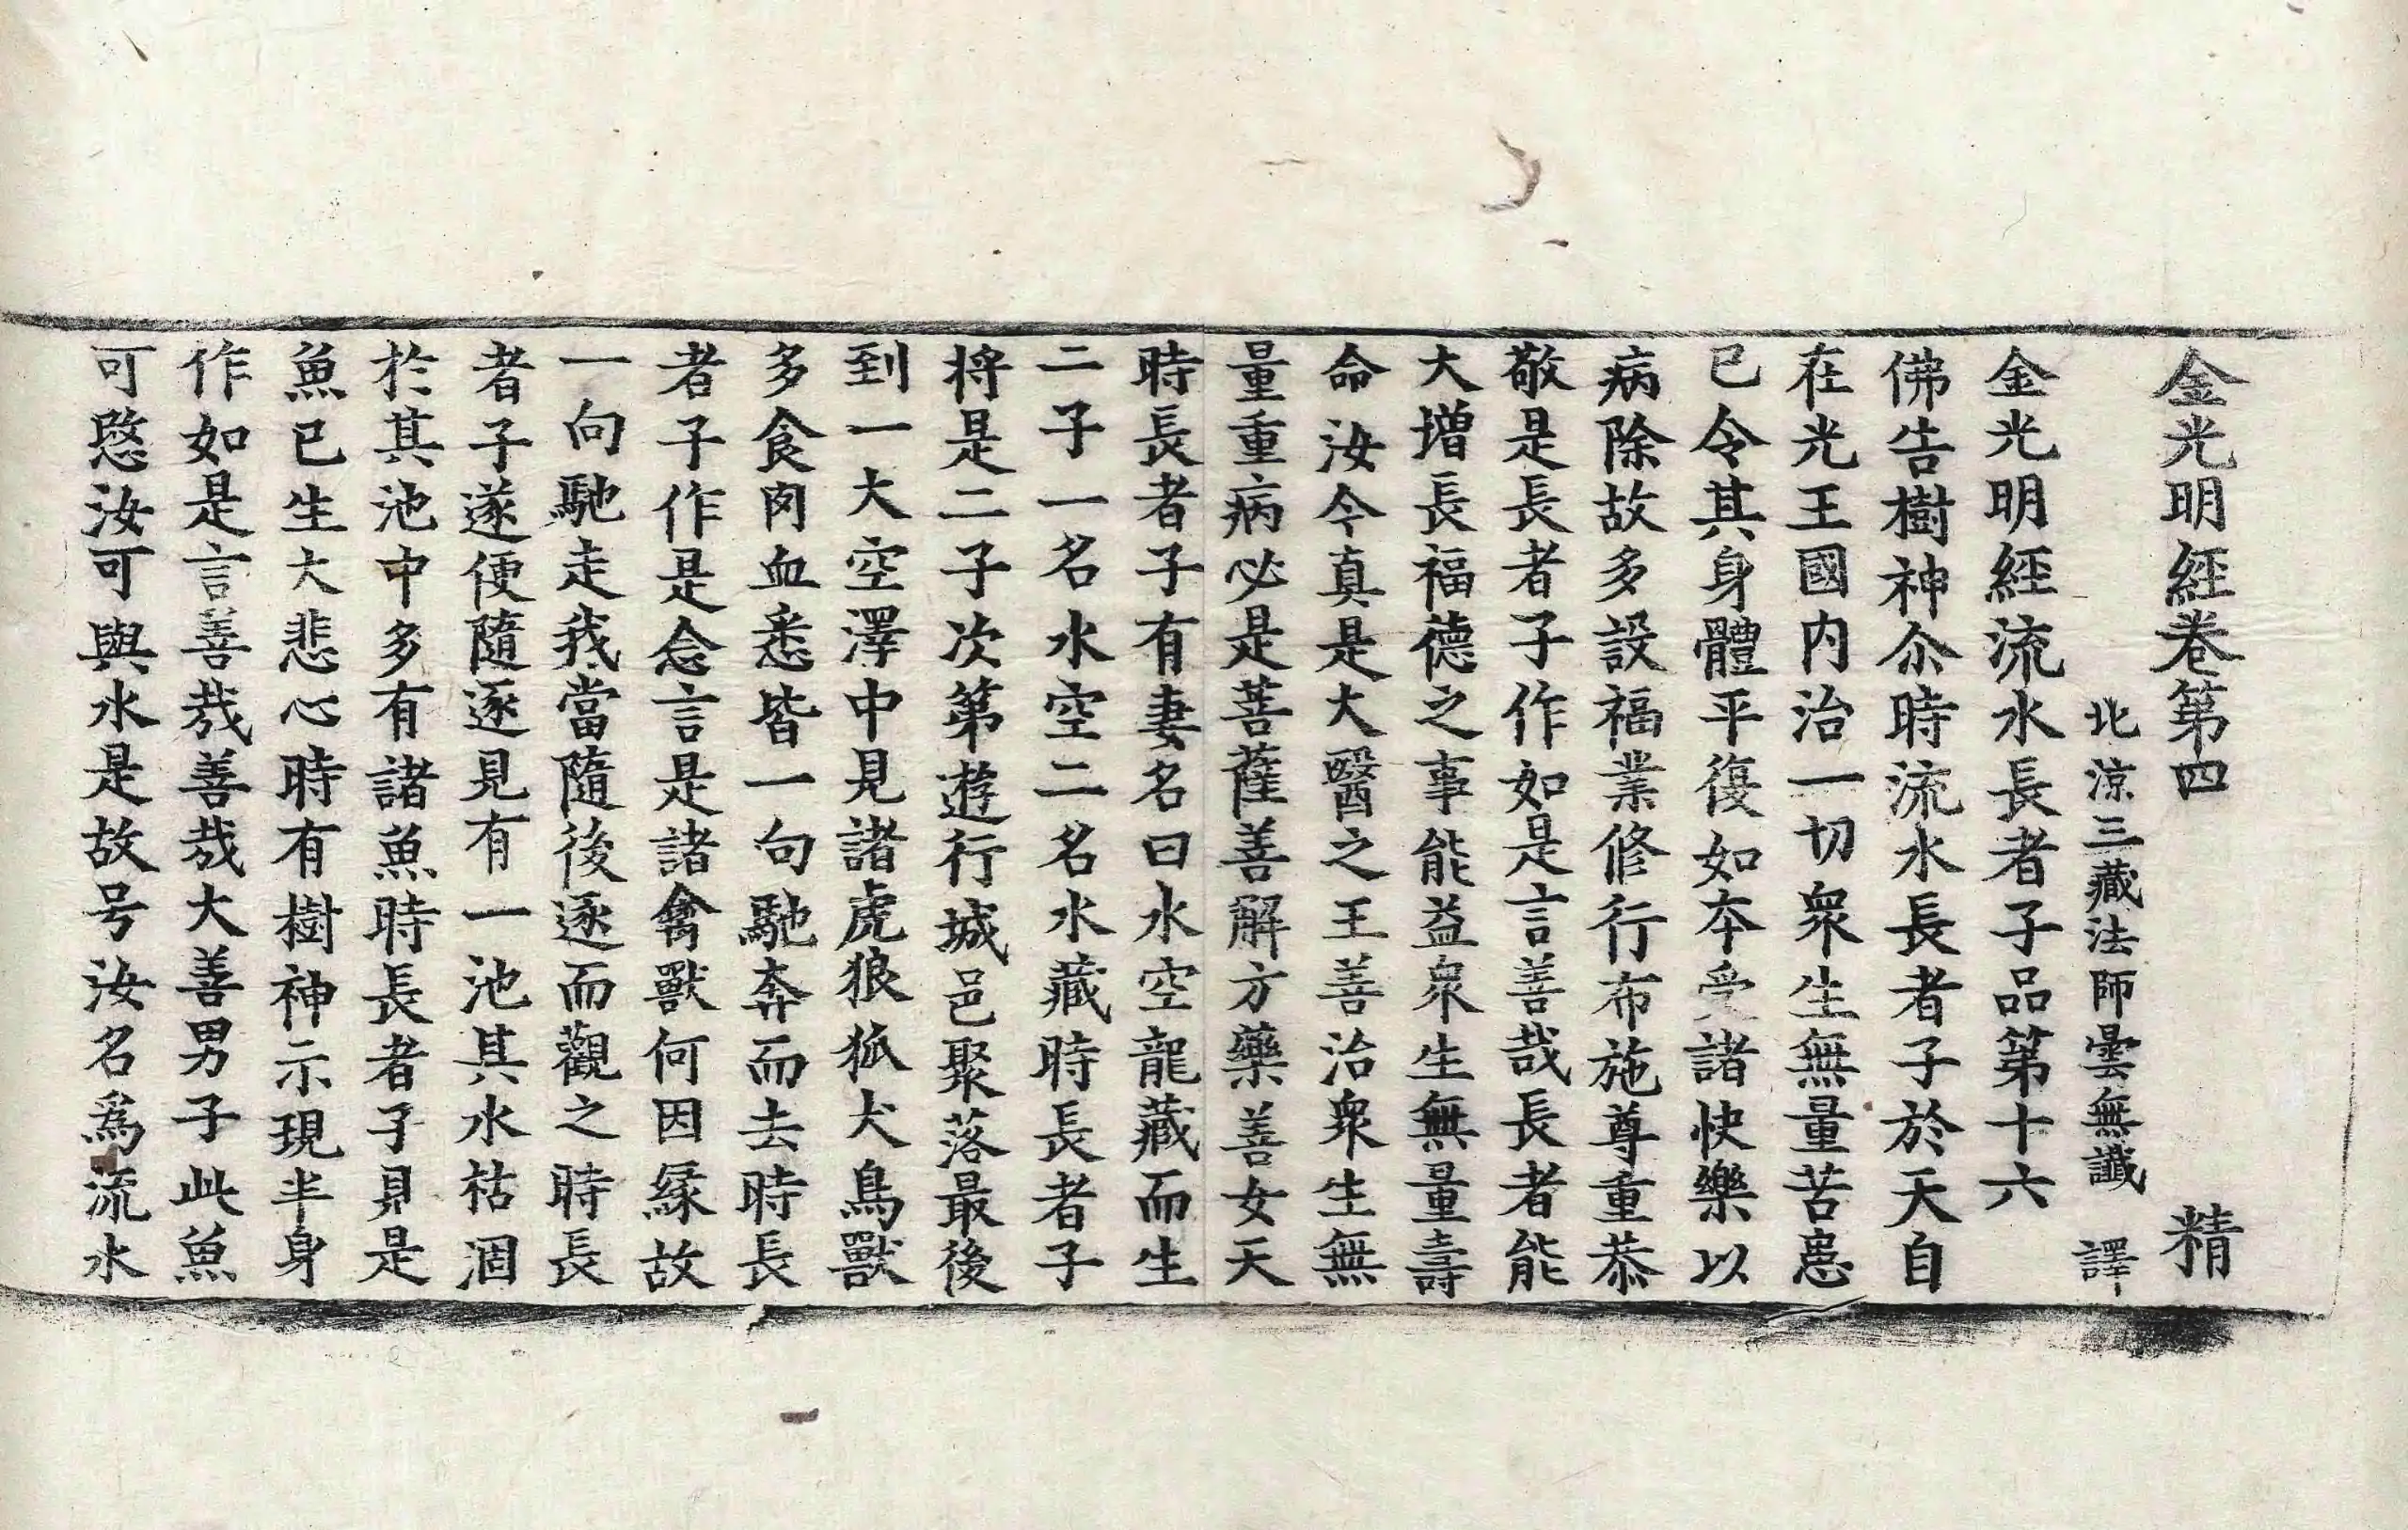 金光明經卷第四　精
北涼三藏法師曇無讖　譯
金光明經流水長者子品第十六
佛告樹神尒時流水長者子於天自
在光王國内治一切衆生無量苦患
已令其身體平復如本受諸快樂以
病除故多設福業修行布施尊重恭
敬是長者子作如是言善哉長者能
大增長福德之事能益衆生無量壽
命汝今真是大醫之王善治衆生無
量重病必是菩薩善解方藥善女天
時長者子有妻名曰水空龍藏而生
二子一名水空二名水藏時長者子
将是二子次第遊行城邑聚落最後
到一大空澤中見諸虎狼狐犬鳥獸
多食肉血悉皆一向馳奔而去時長
者子作是念言是諸禽獸何因緣故
一向馳走我當隨後逐而觀之時長
者子遂便隨逐見有一池其水枯涸
於其池中多有諸魚時長者子見是
魚已生大悲心時有樹神示現半身
作如是言善哉善哉大善男子此魚
可愍汝可與水是故号汝名爲流水